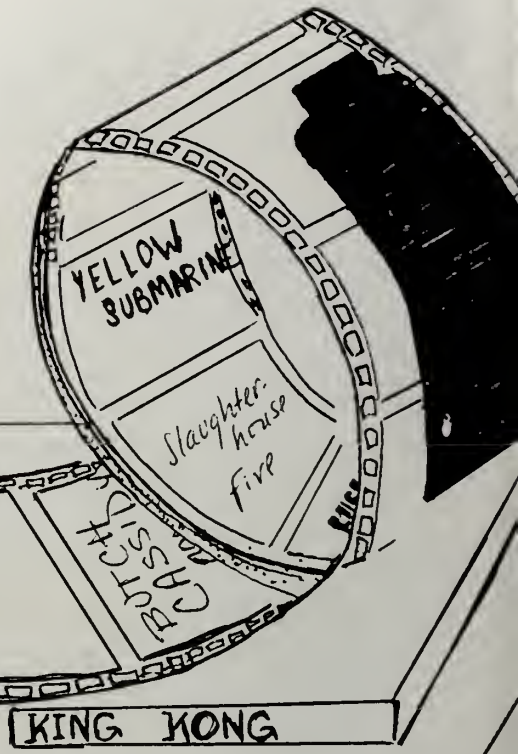 YELLOW
SUBMARINE
Slaughter-
house
five
BUTCH
CASSIDY
KING KONG